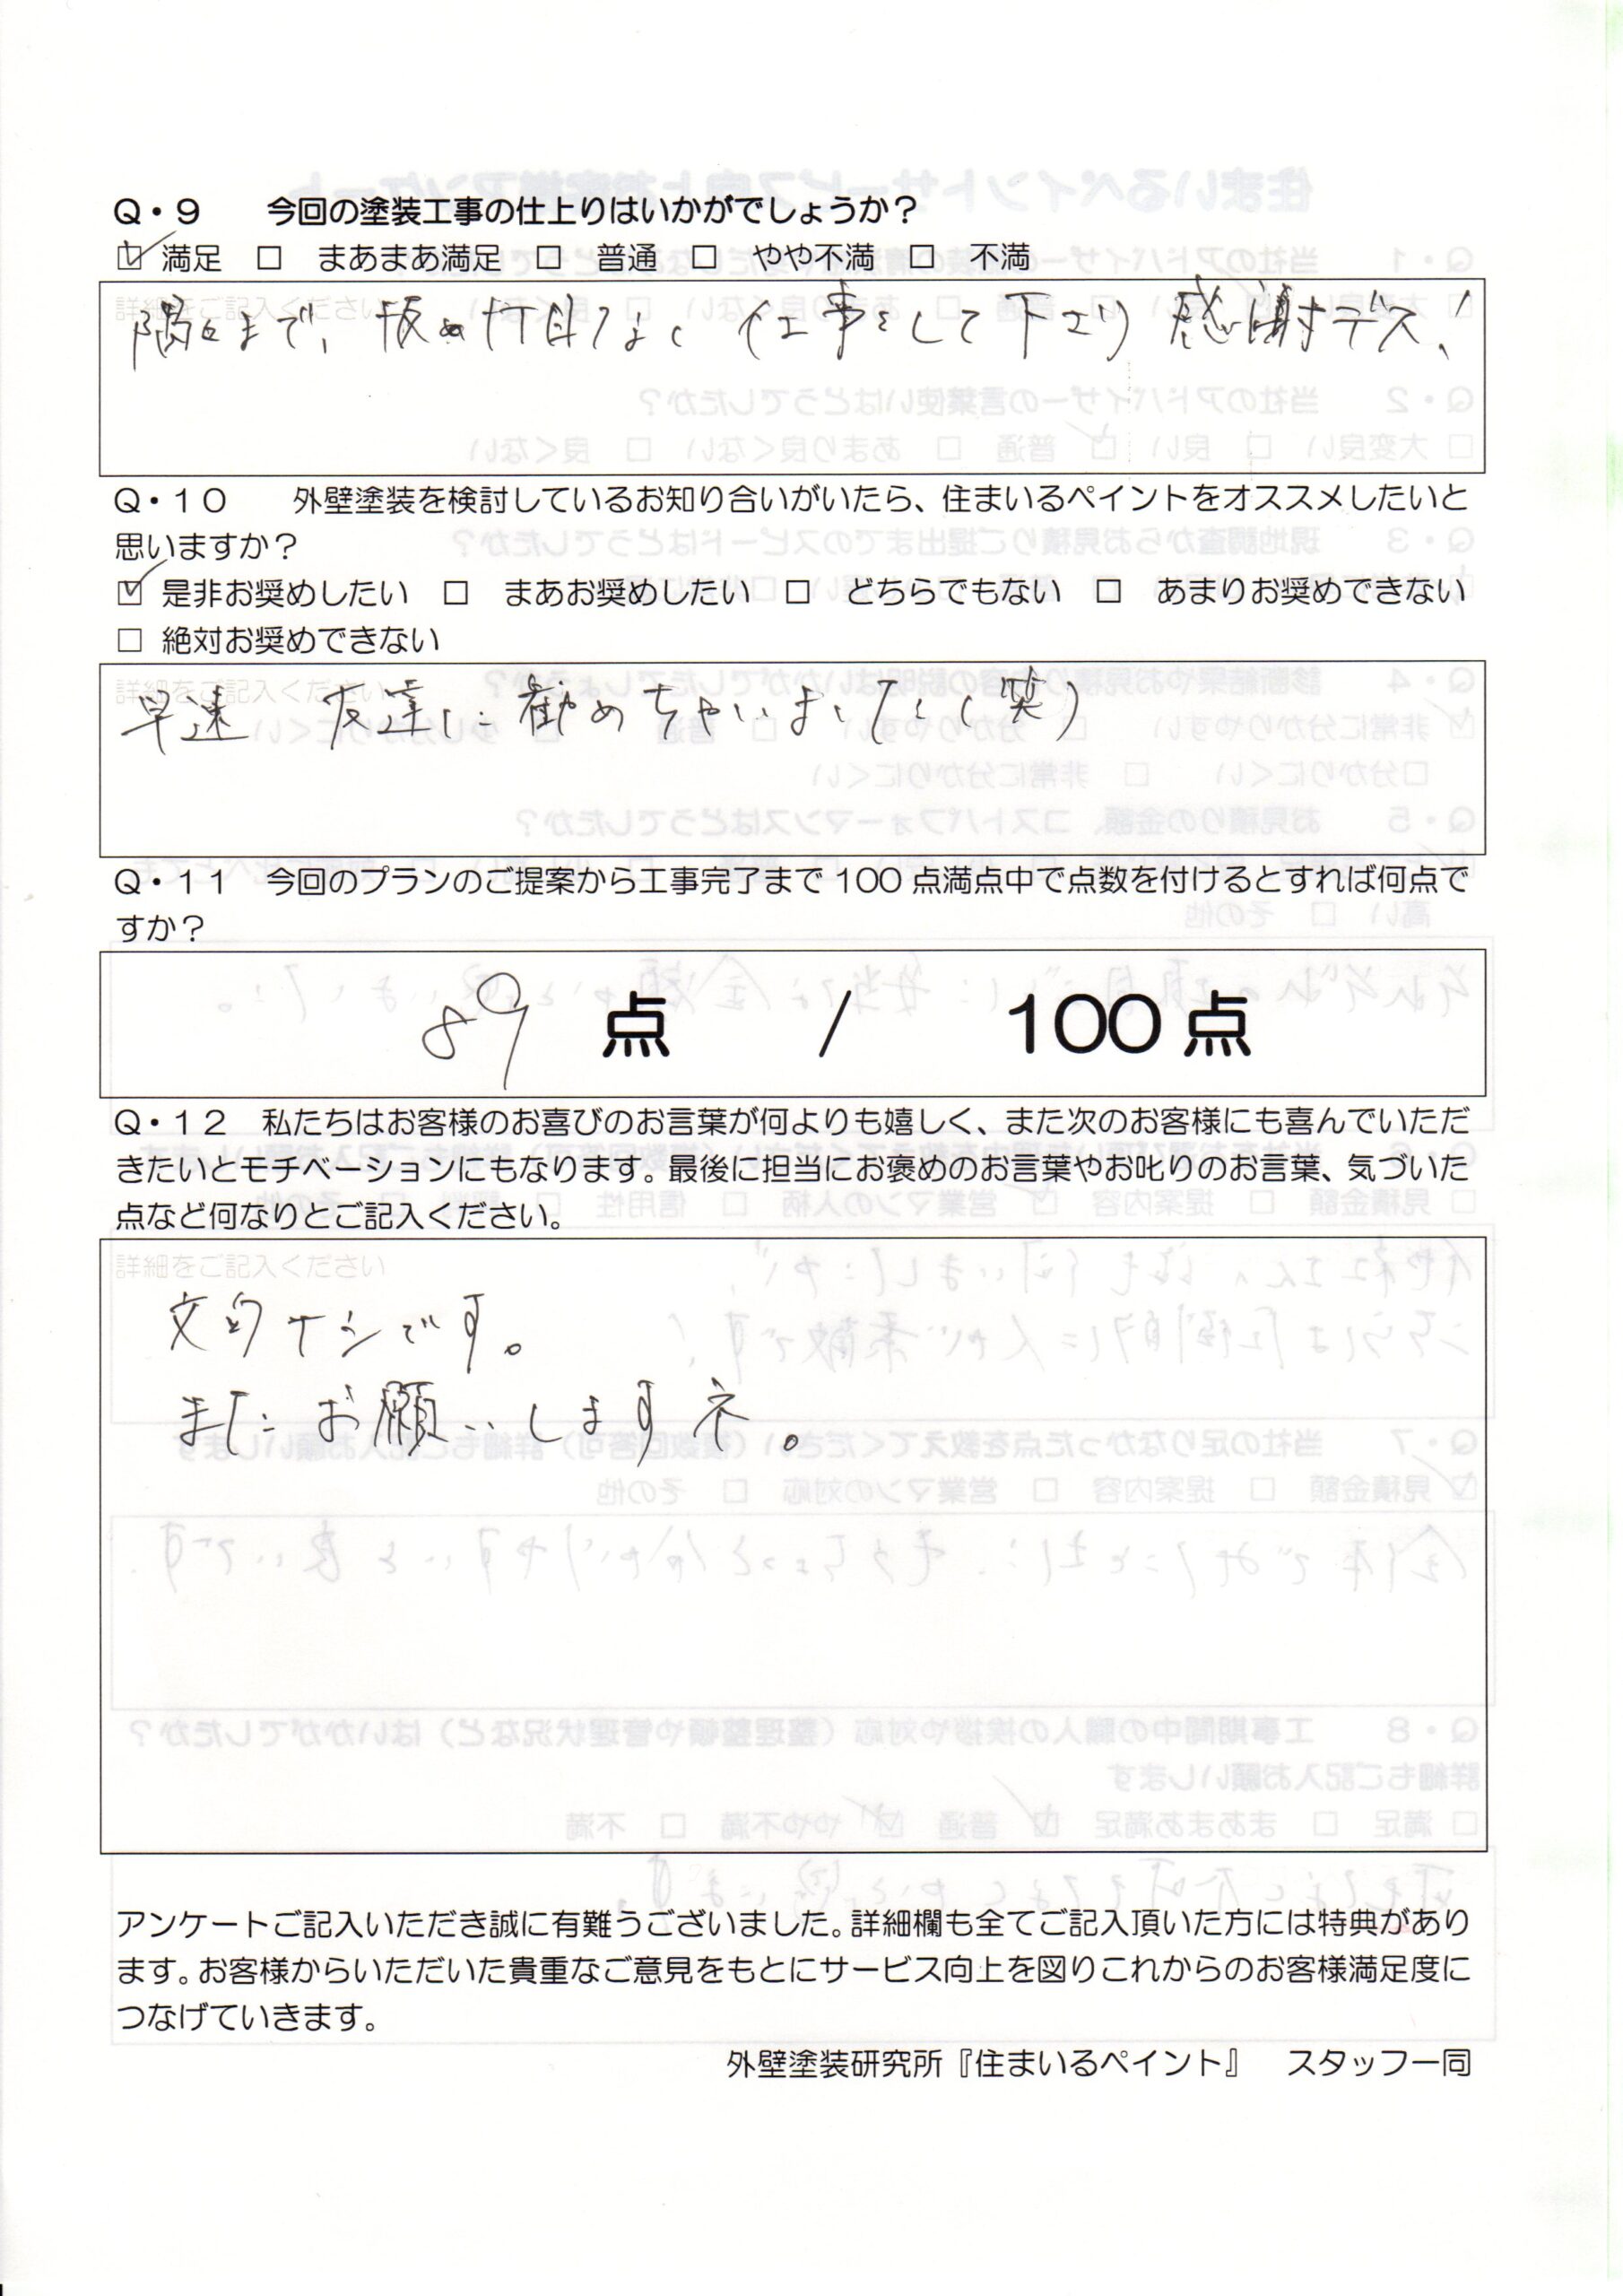 Q・9 今回の塗装工事の仕上りはいかがでしょうか？
☑ 満足 □ まあまあ満足 □ 普通 □ やや不満 □ 不満
詳細をご記入ください
隅々まで、抜め付目なく仕事をして下さり感謝デス!
Q・10 外壁塗装を検討しているお知り合いがいたら、住まいるペイントをオススメしたいと
思いますか？
☑ 是非お奨めしたい □ まあお奨めしたい □ どちらでもない □ あまりお奨めできない
□ 絶対お奨めできない
詳細をご記入ください
早速 友達に勧めちゃいました(笑)
Q・11 今回のプランのご提案から工事完了まで100点満点中で点数を付けるとすれば何点で
すか？
89 点 / 100点
Q・12 私たちはお客様のお喜びのお言葉が何よりも嬉しく、また次のお客様にも喜んでいただ
きたいとモチベーションにもなります。最後に担当にお褒めのお言葉やお叱りのお言葉、気づいた
点など何なりとご記入ください。
詳細をご記入ください
文句ナシです。
またお願いしますネ。
アンケートご記入いただき誠に有難うございました。詳細欄も全てご記入頂いた方には特典があり
ます。お客様からいただいた貴重なご意見をもとにサービス向上を図りこれからのお客様満足度に
つなげていきます。
外壁塗装研究所『住まいるペイント』 スタッフ一同